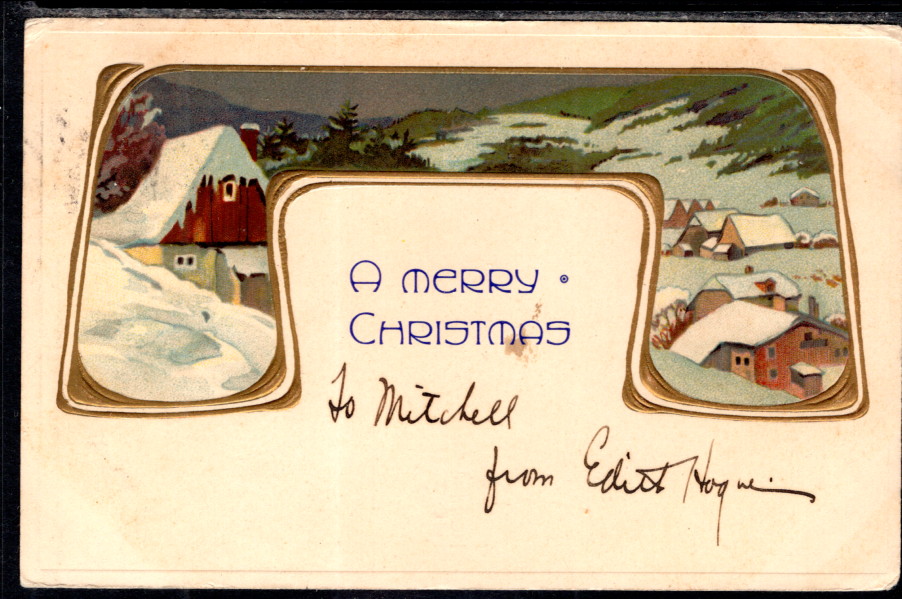 A MERRY
CHRISTMAS
To Mitchell
from Edith